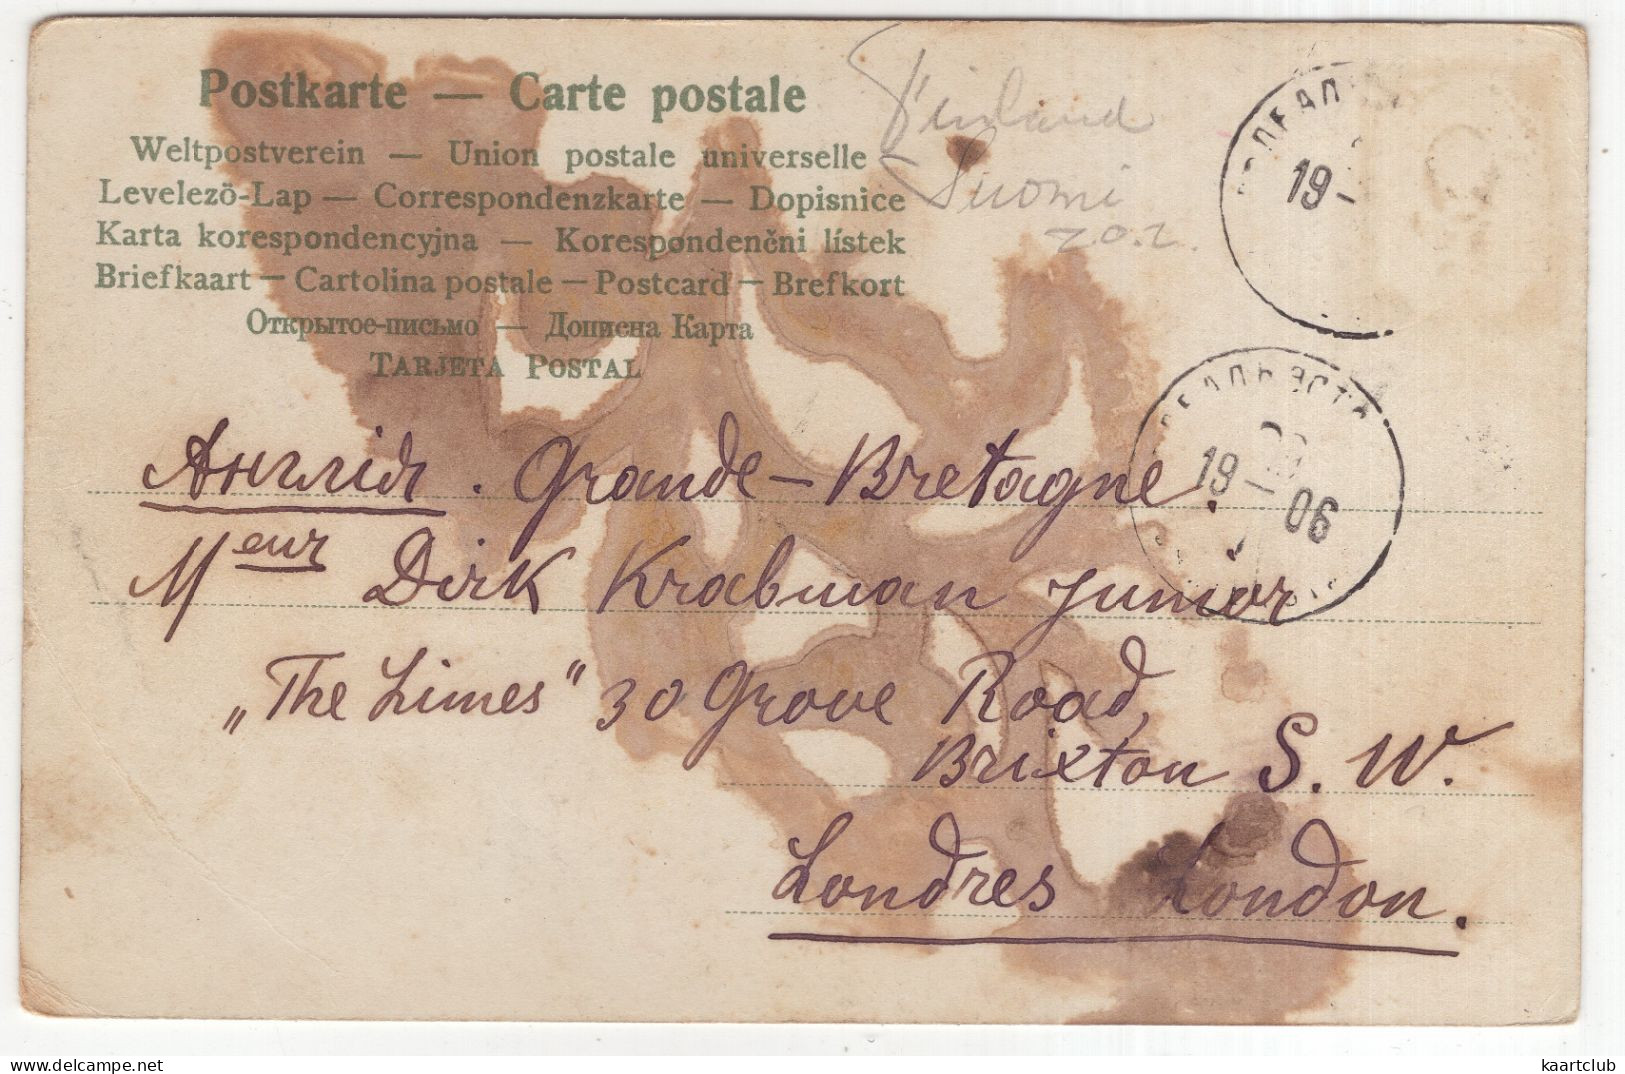 Postkarte — Carte postale
Weltpostverein — Union postale universelle
Levelező-Lap — Correspondenzkarte — Dopisnice
Karta korespondencyjna — Korespondenčni lístek
Briefkaart — Cartolina postale — Postcard — Brefkort
Открытое-письмо — Дописна Карта
TARJETA POSTAL
Finland
Suomi
19
РЕВАЛЬ ЭСТЛ
19 — 06
Англія. Grande-Bretagne.
Meur Dirk Krabman Junior
„The Limes" 30 Grove Road,
Brixton S. W.
Londres London.
kaartclub